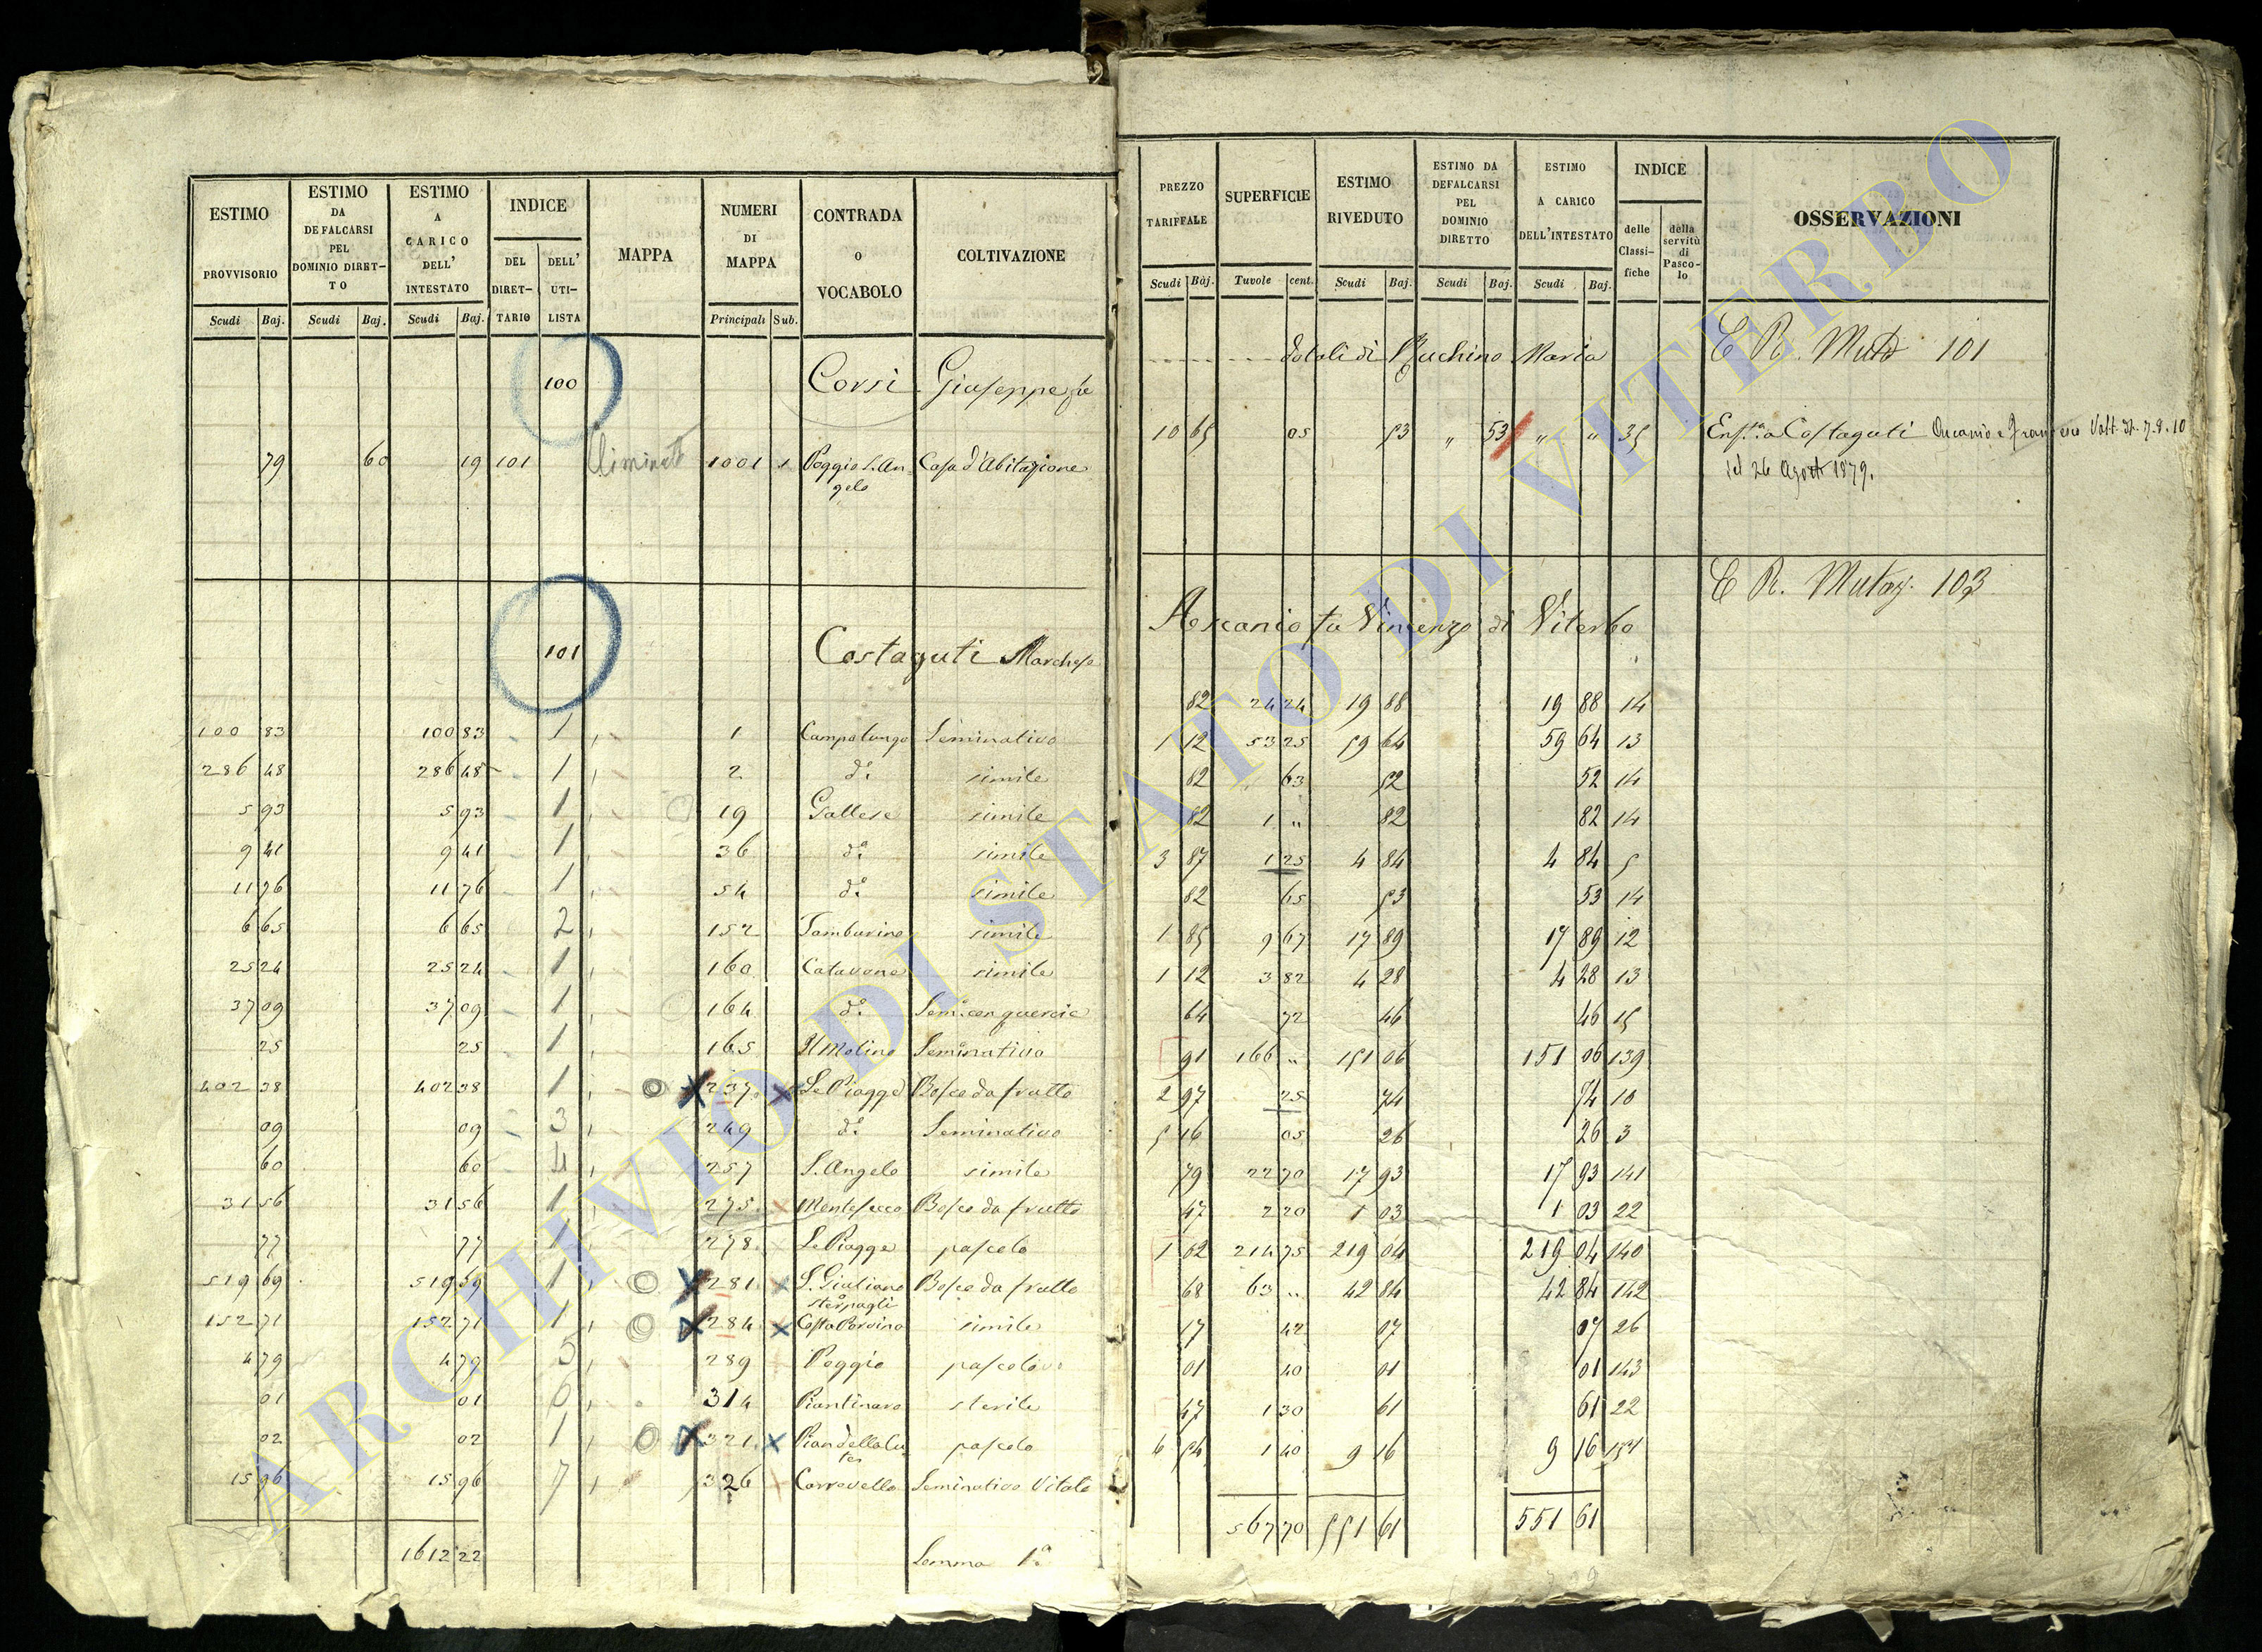 ESTIMO PROVVISORIO | ESTIMO DA DEFALCARSI PEL DOMINIO DIRET-TO | ESTIMO A CARICO DELL' INTESTATO | INDICE | MAPPA | NUMERI DI MAPPA | CONTRADA O VOCABOLO | COLTIVAZIONE | PREZZO TARIFFALE | SUPERFICIE | ESTIMO RIVEDUTO | ESTIMO DA DEFALCARSI PEL DOMINIO DIRETTO | ESTIMO A CARICO DELL'INTESTATO | INDICE | OSSERVAZIONI
DEL DIRET-TARIO | DELL' UTI-LISTA | delle Classi-fiche | della servitù di Pasco-lo
Scudi | Baj. | Scudi | Baj. | Scudi | Baj. | Principali | Sub. | Scudi | Baj. | Tavole | cent. | Scudi | Baj. | Scudi | Baj. | Scudi | Baj.
100 Corsi Giuseppe fu dotali di Maria E R. Mut 101
79 60 19 101 Eliminato 1001 1 Poggio S. Angelo Casa d'Abitazione 10 65 05 53 " 53 " " 35 Costaguti Ascanio e Francesco Volt.
del 26 Agosto 1879.
E R. Mutaz. 103
101 Costaguti Marchese Ascanio fu Vincenzo di Viterbo
100 83 100 83 1 1 Campolungo Seminativo 82 24 24 19 88 19 88 14
286 48 286 48 1 2 d.° simile 1 12 53 25 59 64 59 64 13
5 93 5 93 1 19 Gallese simile 82 63 52 52 14
9 41 9 41 1 36 d.° simile 82 1 " 82 82 14
11 76 11 76 1 54 d.° simile 3 87 1 25 4 84 4 84 5
6 65 6 65 2 152 Tamburino simile 82 65 53 53 14
25 24 25 24 1 160 Catavone simile 1 85 9 67 17 89 17 89 12
37 09 37 09 1 164 d.° Sem. con quercie 1 12 3 82 4 28 4 28 13
25 25 1 165 Il Molino Seminativo 64 72 46 46 15
402 38 402 38 1 237 Le Piagge Bosco da frutto 91 166 " 151 06 151 06 139
09 09 3 249 d.° Seminativo 2 97 25 74 74 10
60 60 4 257 S. Angelo simile 5 16 05 26 26 3
31 56 31 56 1 275 Montesecco Bosco da frutto 79 22 70 17 93 17 93 141
77 77 1 278 Le Piagge pascolo 47 2 20 1 03 1 03 22
519 69 519 69 1 281 S. Giuliano Bosco da frutto 1 02 214 75 219 04 219 04 140
152 71 152 71 1 284 Costa simile 68 63 " 42 84 42 84 142
4 79 4 79 5 289 Poggio pascolivo 17 42 07 07 26
01 01 6 314 Piantinaro sterile 01 40 01 01 143
02 02 1 321 pascolo 47 1 30 61 61 22
15 96 15 96 7 326 Carravella Seminativo Vitato 6 54 1 40 9 16 9 16
1612 22 Somma 1.a 567 70 551 61 551 61
ARCHIVIO DI STATO DI VITERBO